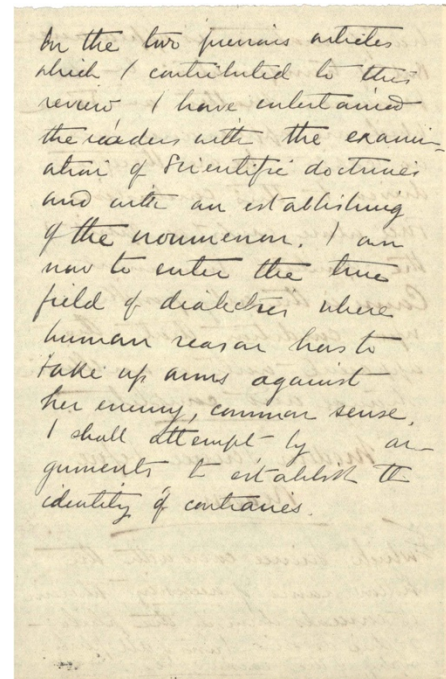 In the two previous articles
which I contributed to this
review I have entertained
the readers with the examin-
ation of Scientific doctrines
and with an establishing
of the noumenon. I am
now to enter the true
field of dialectics where
human reason has to
take up arms against
her enemy, common sense.
I shall attempt by ar-
guments to establish the
identity of contraries.